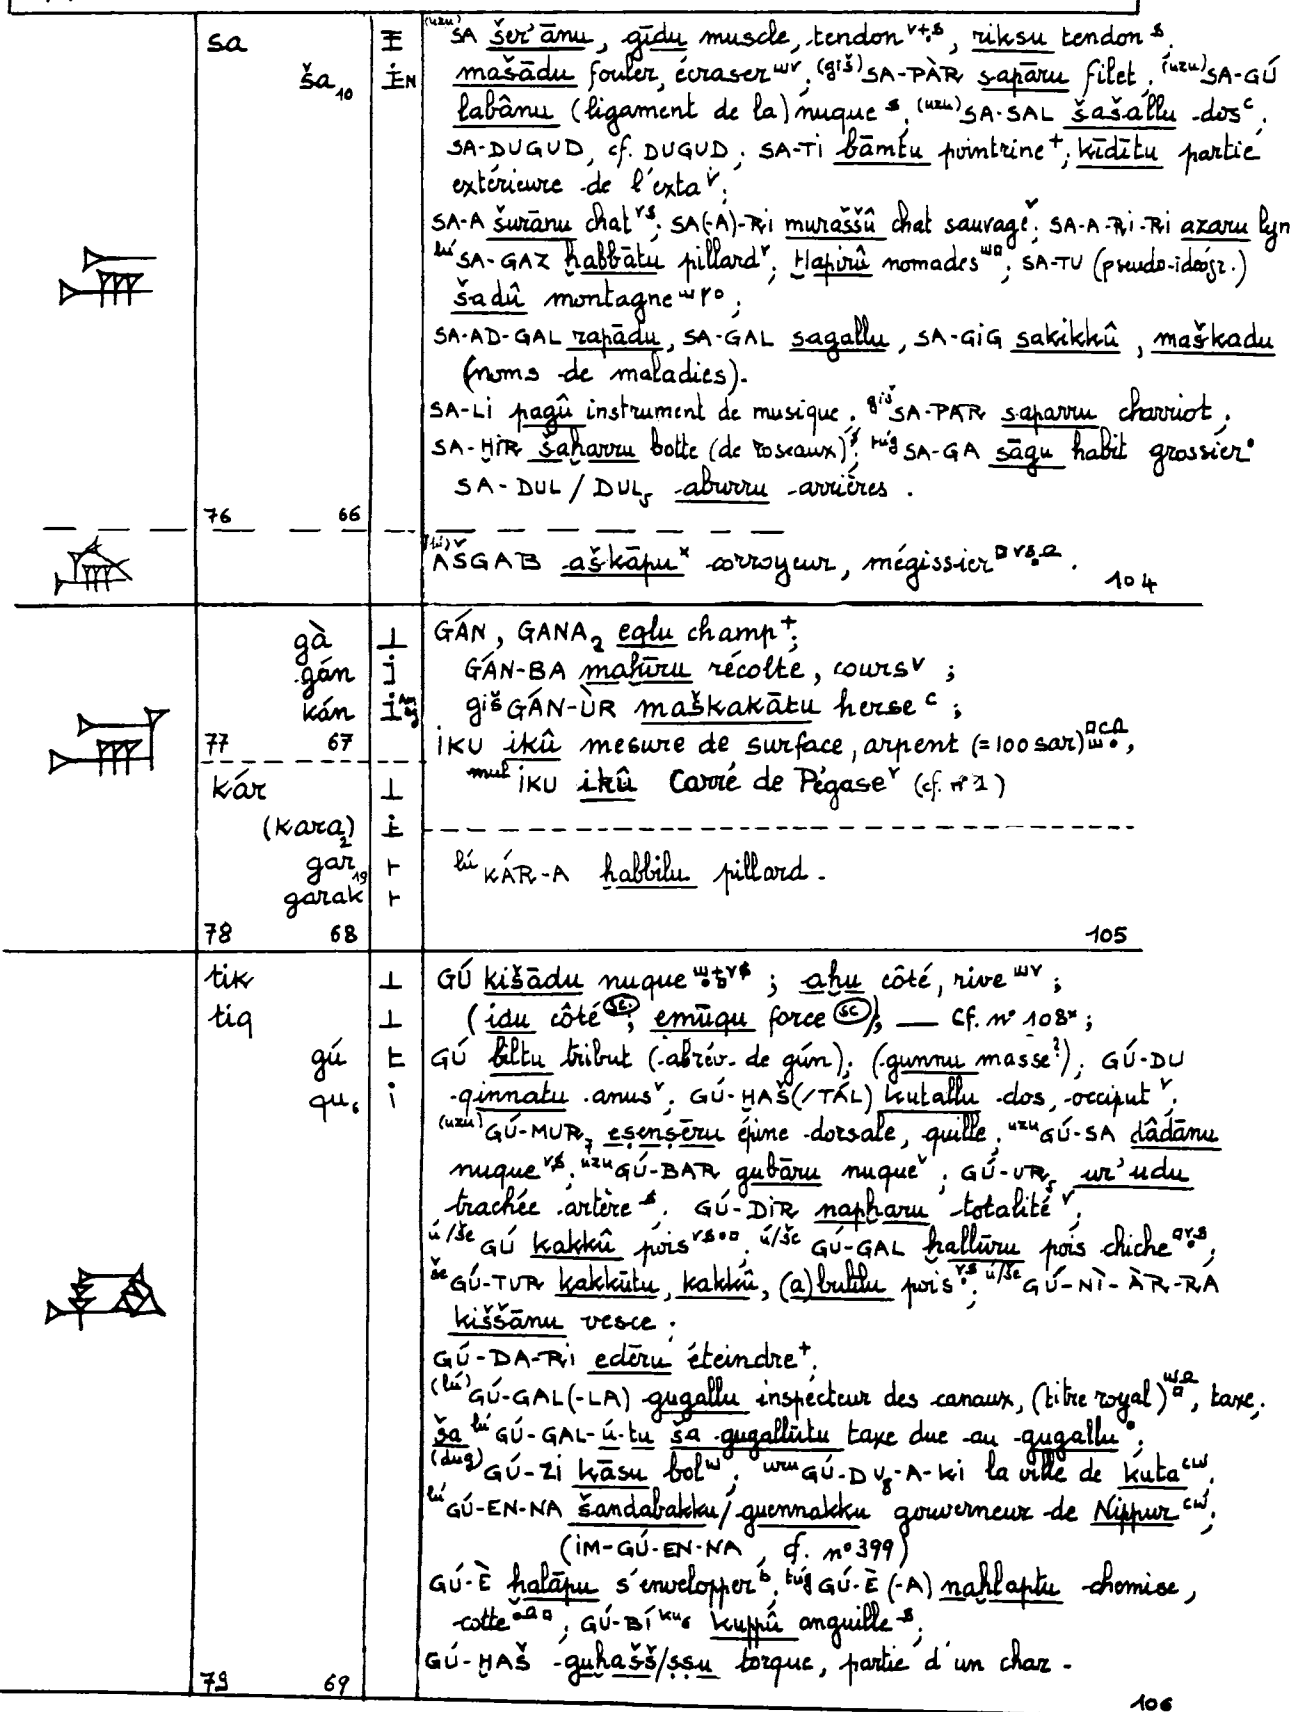 sa (uzu)SA šer'ānu, gīdu muscle, tendon v+s, riksu tendon s
ša₁₀ mašādu fouler, écraser wv; (giš)SA-PÀR sapāru filet; (uzu)SA-GÚ
labânu (ligament de la) nuque s; (uzu)SA-SAL šašallu dos c;
SA-DUGUD, cf. DUGUD; SA-TI bāmtu pointrine +; kīdītu partie
extérieure de l'exta v;
SA-A šurānu chat vs; SA(-A)-RI murašŝû chat sauvage v; SA-A-RI-RI azaru lyn
lú SA-GAZ ḫabbātu pillard v; Ḫapirû nomades; SA-TU (pseudo-idéogr.)
šadû montagne;
SA-AD-GAL rapādu, SA-GAL sagallu, SA-GIG sakikkû, maškadu
(noms de maladies).
SA-LI pagû instrument de musique; giš SA-PAR saparru charriot;
SA-ḪIR šaḫarru botte (de roseaux); túg SA-GA sāgu habit grossier
SA-DUL/DUL₅ aburru arrières.
76 66
(lú) AŠGAB aškāpu x corroyeur, mégissier.
104
gà GÁN, GANA₂ eqlu champ +;
gán GÁN-BA maḫīru récolte, cours v;
kán giš GÁN-ÙR maškakātu herse c;
77 67 IKU ikû mesure de surface, arpent (=100 sar),
kár mul IKU ikû Carré de Pégase v (cf. n°1)
(kara₂)
gar₁₉ lú KÁR-A ḫabbilu pillard.
garak
78 68 105
tik GÚ kišādu nuque; aḫu côté, rive wv;
tiq (idu côté sc; emūqu force sc); — Cf. n° 108x;
gú GÚ biltu tribut (abrév. de gún); (gunnu masse?); GÚ-DU
qu₆ qinnatu anus v; GÚ-ḪAŠ(/TÁL) kutallu dos, occiput v;
(uzu)GÚ-MUR₇ eṣenṣēru épine dorsale, quille; uzu GÚ-SA dâdānu
nuque vs; uzu GÚ-BAR gubāru nuque v; GÚ-UR₅ ur'udu
trachée artère s. GÚ-DIR napḫaru totalité v;
ú/še GÚ kakkû pois; ú/še GÚ-GAL ḫallūru pois chiche;
še GÚ-TUR kakkūtu, kakkû, (a)bulilu pois; ú/še GÚ-NÌ-ÀR-RA
kiššānu vesce;
GÚ-DA-RI edēru éteindre +;
(lú)GÚ-GAL(-LA) gugallu inspecteur des canaux, (titre royal), taxe;
ša lú GÚ-GAL-ú-tu ša gugallūtu taxe due au gugallu;
(dug)GÚ-ZI kāsu bol w; uru GÚ-DU₈-A-KI la ville de Kuta cw;
lú GÚ-EN-NA šandabakku/guennakku gouverneur de Nippur cw;
(IM-GÚ-EN-NA, cf. n° 399)
GÚ-È ḫalāpu s'envelopper b; túg GÚ-È(-A) naḫlaptu chemise,
cotte; GÚ-BÍ ku₆ kuppû anguille s;
GÚ-ḪAŠ guḫašš/ṣṣu torque, partie d'un char.
79 69
106